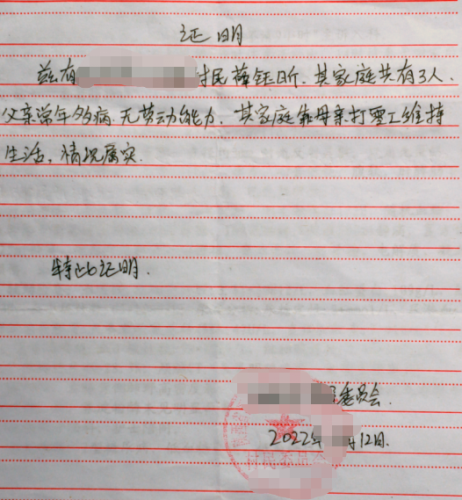 证明
兹有村民薛钰昕，其家庭共有3人，
父亲常年多病，无劳动能力，其家庭靠母亲打零工维持
生活，情况属实.
特此证明.
委员会.
2022年 12日.